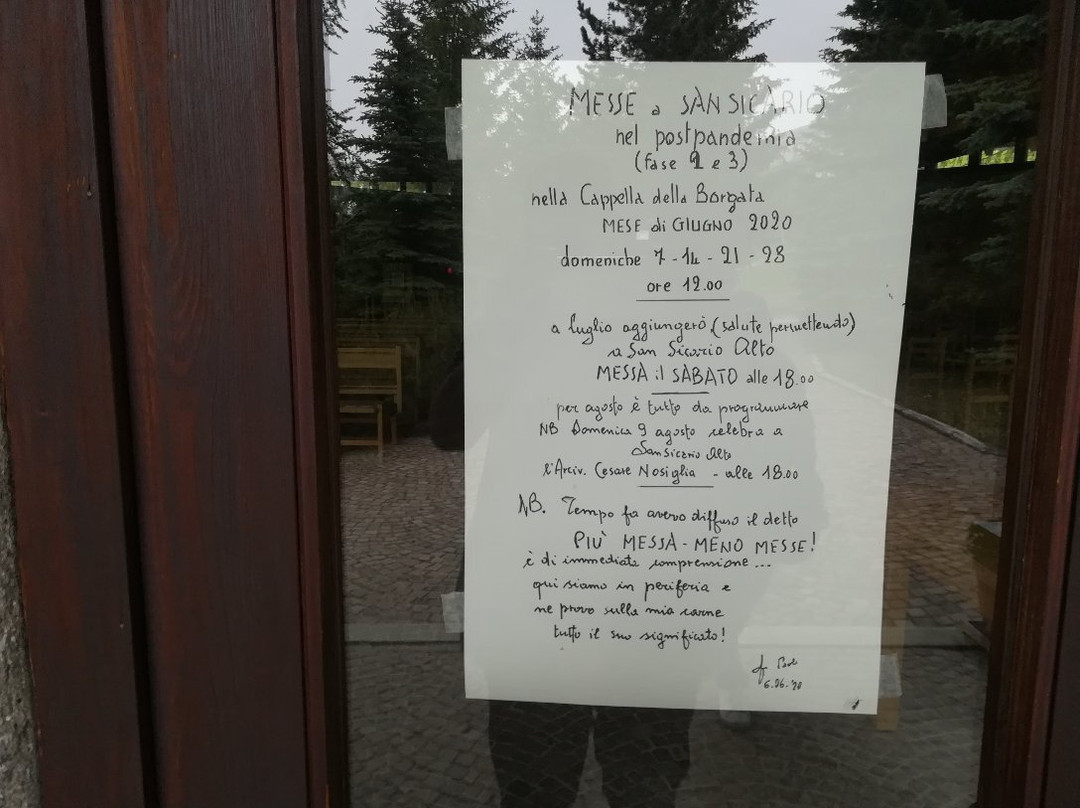 MESSE a SAN SICARIO
nel postpandemia
(fase 2 e 3)
nella Cappella della Borgata
MESE di GIUGNO 2020
domeniche 7 - 14 - 21 - 28
ore 12.00
a luglio aggiungerò (salute permettendo)
a San Sicario Alto
MESSA il SABATO alle 18.00
per agosto è tutto da programmare
NB Domenica 9 agosto celebra a
San Sicario Alto
l'Arciv. Cesare Nosiglia - alle 18.00
NB. Tempo fa avevo diffuso il detto
PIÙ MESSA - MENO MESSE!
è di immediata comprensione...
qui siamo in periferia e
ne provo sulla mia carne
tutto il suo significato!